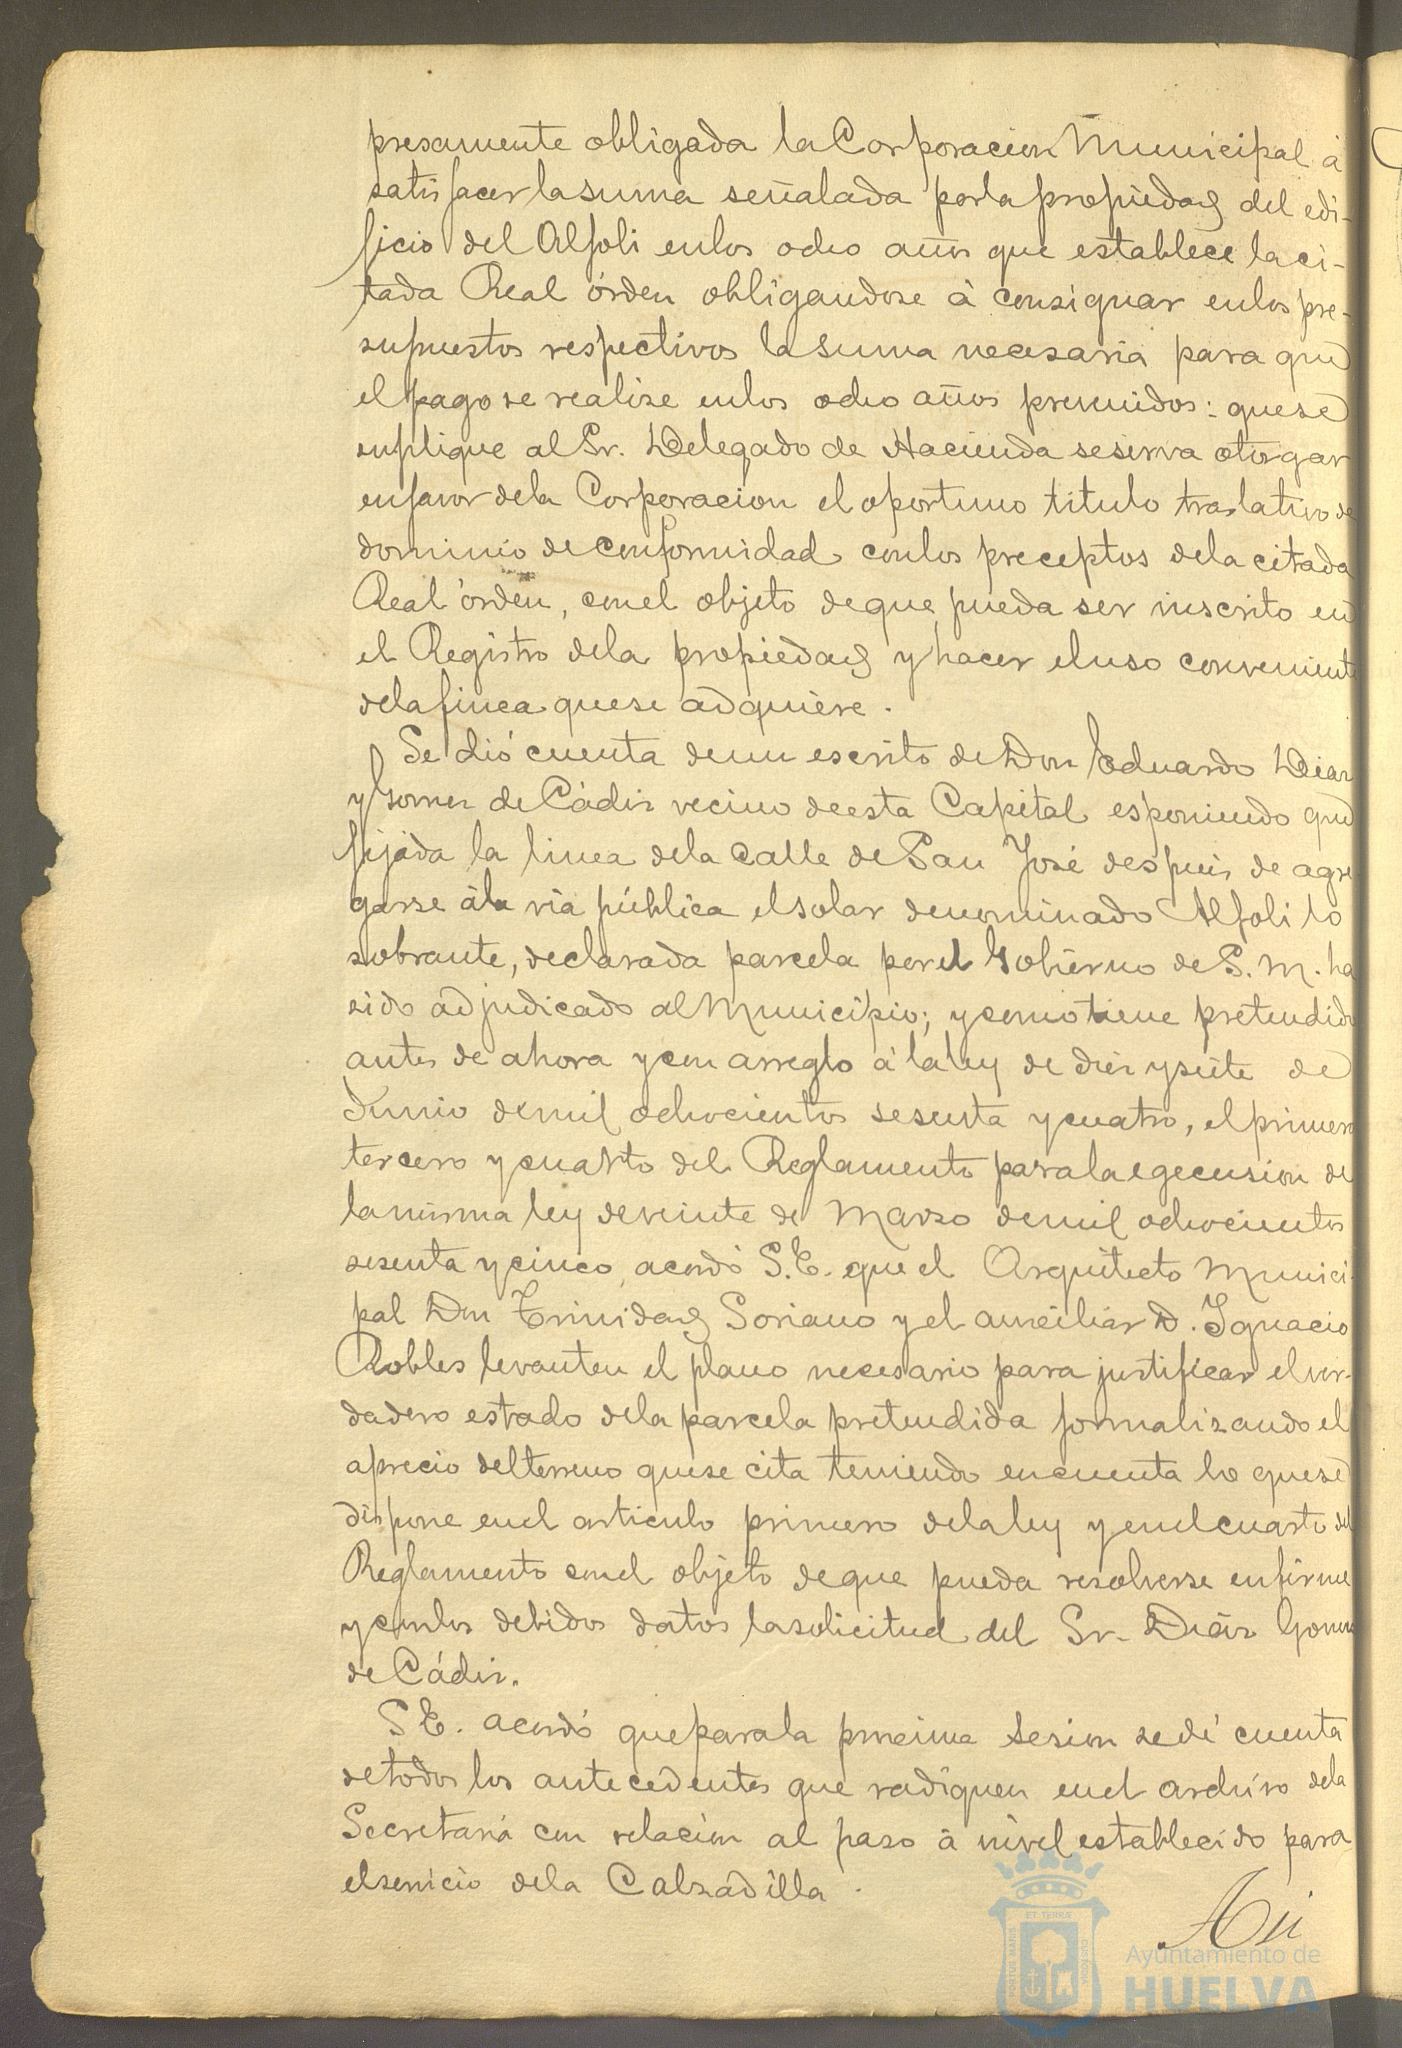 presamente obligada la Corporacion Municipal á
satisfacer la suma señalada por la propiedad del edi-
ficio del Alfoli en los ocho años que establece la ci-
tada Real órden obligandose á consignar en los pre-
supuestos respectivos la suma necesaria para que
el pago se realise en los ocho años premidos: que se
suplique al Sr. Delegado de Hacienda se sirva otorgar
en favor de la Corporacion el oportuno titulo traslativo de
dominio de conformidad con los preceptos de la citada
Real órden, con el objeto de que pueda ser inscrito en
el Registro de la propiedad y hacer el uso conveniente
de la finca que se adquiere.
Se dió cuenta de un escrito de Don Eduardo Diaz
y Gomez de Cádiz vecino de esta Capital esponiendo que
fijada la linea de la Calle de San José despues de agre
garse á la via pública el solar denominado Alfoli lo
sobrante, declarada parcela por el Gobierno de S. M. ha
sido adjudicado al Municipio; y como tiene pretendido
antes de ahora y con arreglo á la ley de diez y siete de
Junio de mil ochocientos sesenta y cuatro, el primero
tercero y cuarto del Reglamento para la egecusion de
la misma ley de veinte de Marzo de mil ochocientos
sesenta y cinco, acordó S. E. que el Arquitecto Munici-
pal Don Trinidad Soriano y el auxiliar D. Ignacio
Robles levanten el plano necesario para justificar el ver-
dadero estado de la parcela pretendida formalizando el
aprecio del terreno que se cita teniendo en cuenta lo que se
dispone en el articulo primero de la ley y en el cuarto del
Reglamento con el objeto de que pueda resolverse en firme
y con los debidos datos la solicitud del Sr. Diaz Gomez
de Cádiz.
S E. acordó que para la proxima sesion se dé cuenta
de todos los antecedentes que radiquen en el archivo de la
Secretaria con relacion al paso á nivel establecido para
el servicio de la Calzadilla.
Ayuntamiento de
HUELVA